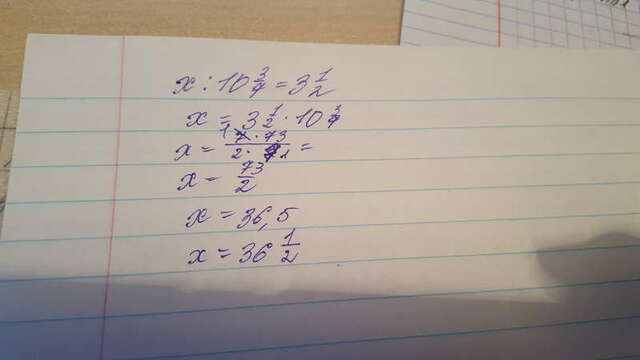 x : 10 3/7 = 3 1/2
x = 3 1/2 · 10 3/7
x = 7 · 73 / 2 · 7 =
x = 73/2
x = 36,5
x = 36 1/2